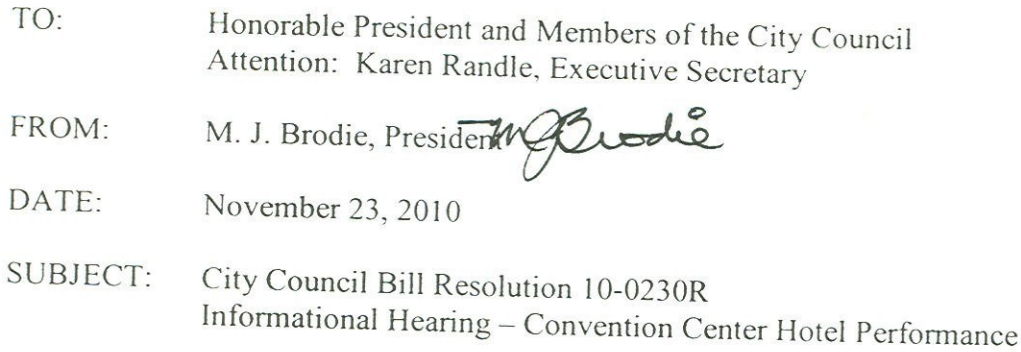 TO: Honorable President and Members of the City Council
Attention: Karen Randle, Executive Secretary
FROM: M. J. Brodie, President MJBrodie
DATE: November 23, 2010
SUBJECT: City Council Bill Resolution 10-0230R
Informational Hearing – Convention Center Hotel Performance